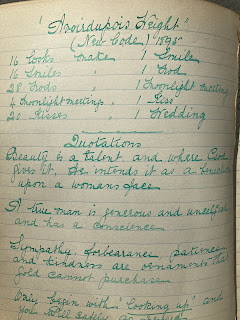 "Avoirdupois Weight"
(New Code) 1895
16 Looks make 1 Smile
16 Smiles " 1 Nod
28 Nods " 1 Moonlight Meeting
4 Moonlight meetings " 1 Kiss
20 Kisses " 1 Wedding
Quotations
Beauty is a talent and where God
gives it, He intends it as a
upon a womans face
A true man is generous and unselfish
and has a conscience
Sympathy, forbearance, patience
and kindness are ornaments that
Gold cannot purchase
Daily begin with "looking up" and
you will